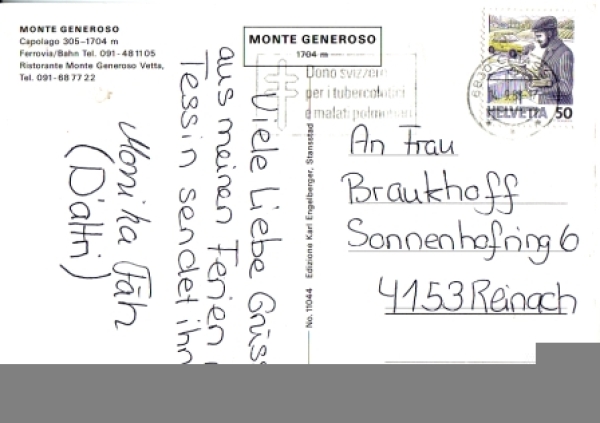 MONTE GENEROSO
Capolago 305–1704 m
Ferrovia/Bahn Tel. 091-48 11 05
Ristorante Monte Generoso Vetta,
Tel. 091-68 77 22
MONTE GENEROSO
1704 m
Dono svizzero
per i tubercolotici
e malati polmonari
HELVETIA 50
Viele liebe Grüss
aus meinen Ferien
Tessin sendet ihn
Monika Fäh
No. 11044 Edizione Karl Engelberger, Stansstad
An Frau
Braukhoff
Sonnenhofring 6
4153 Reinach